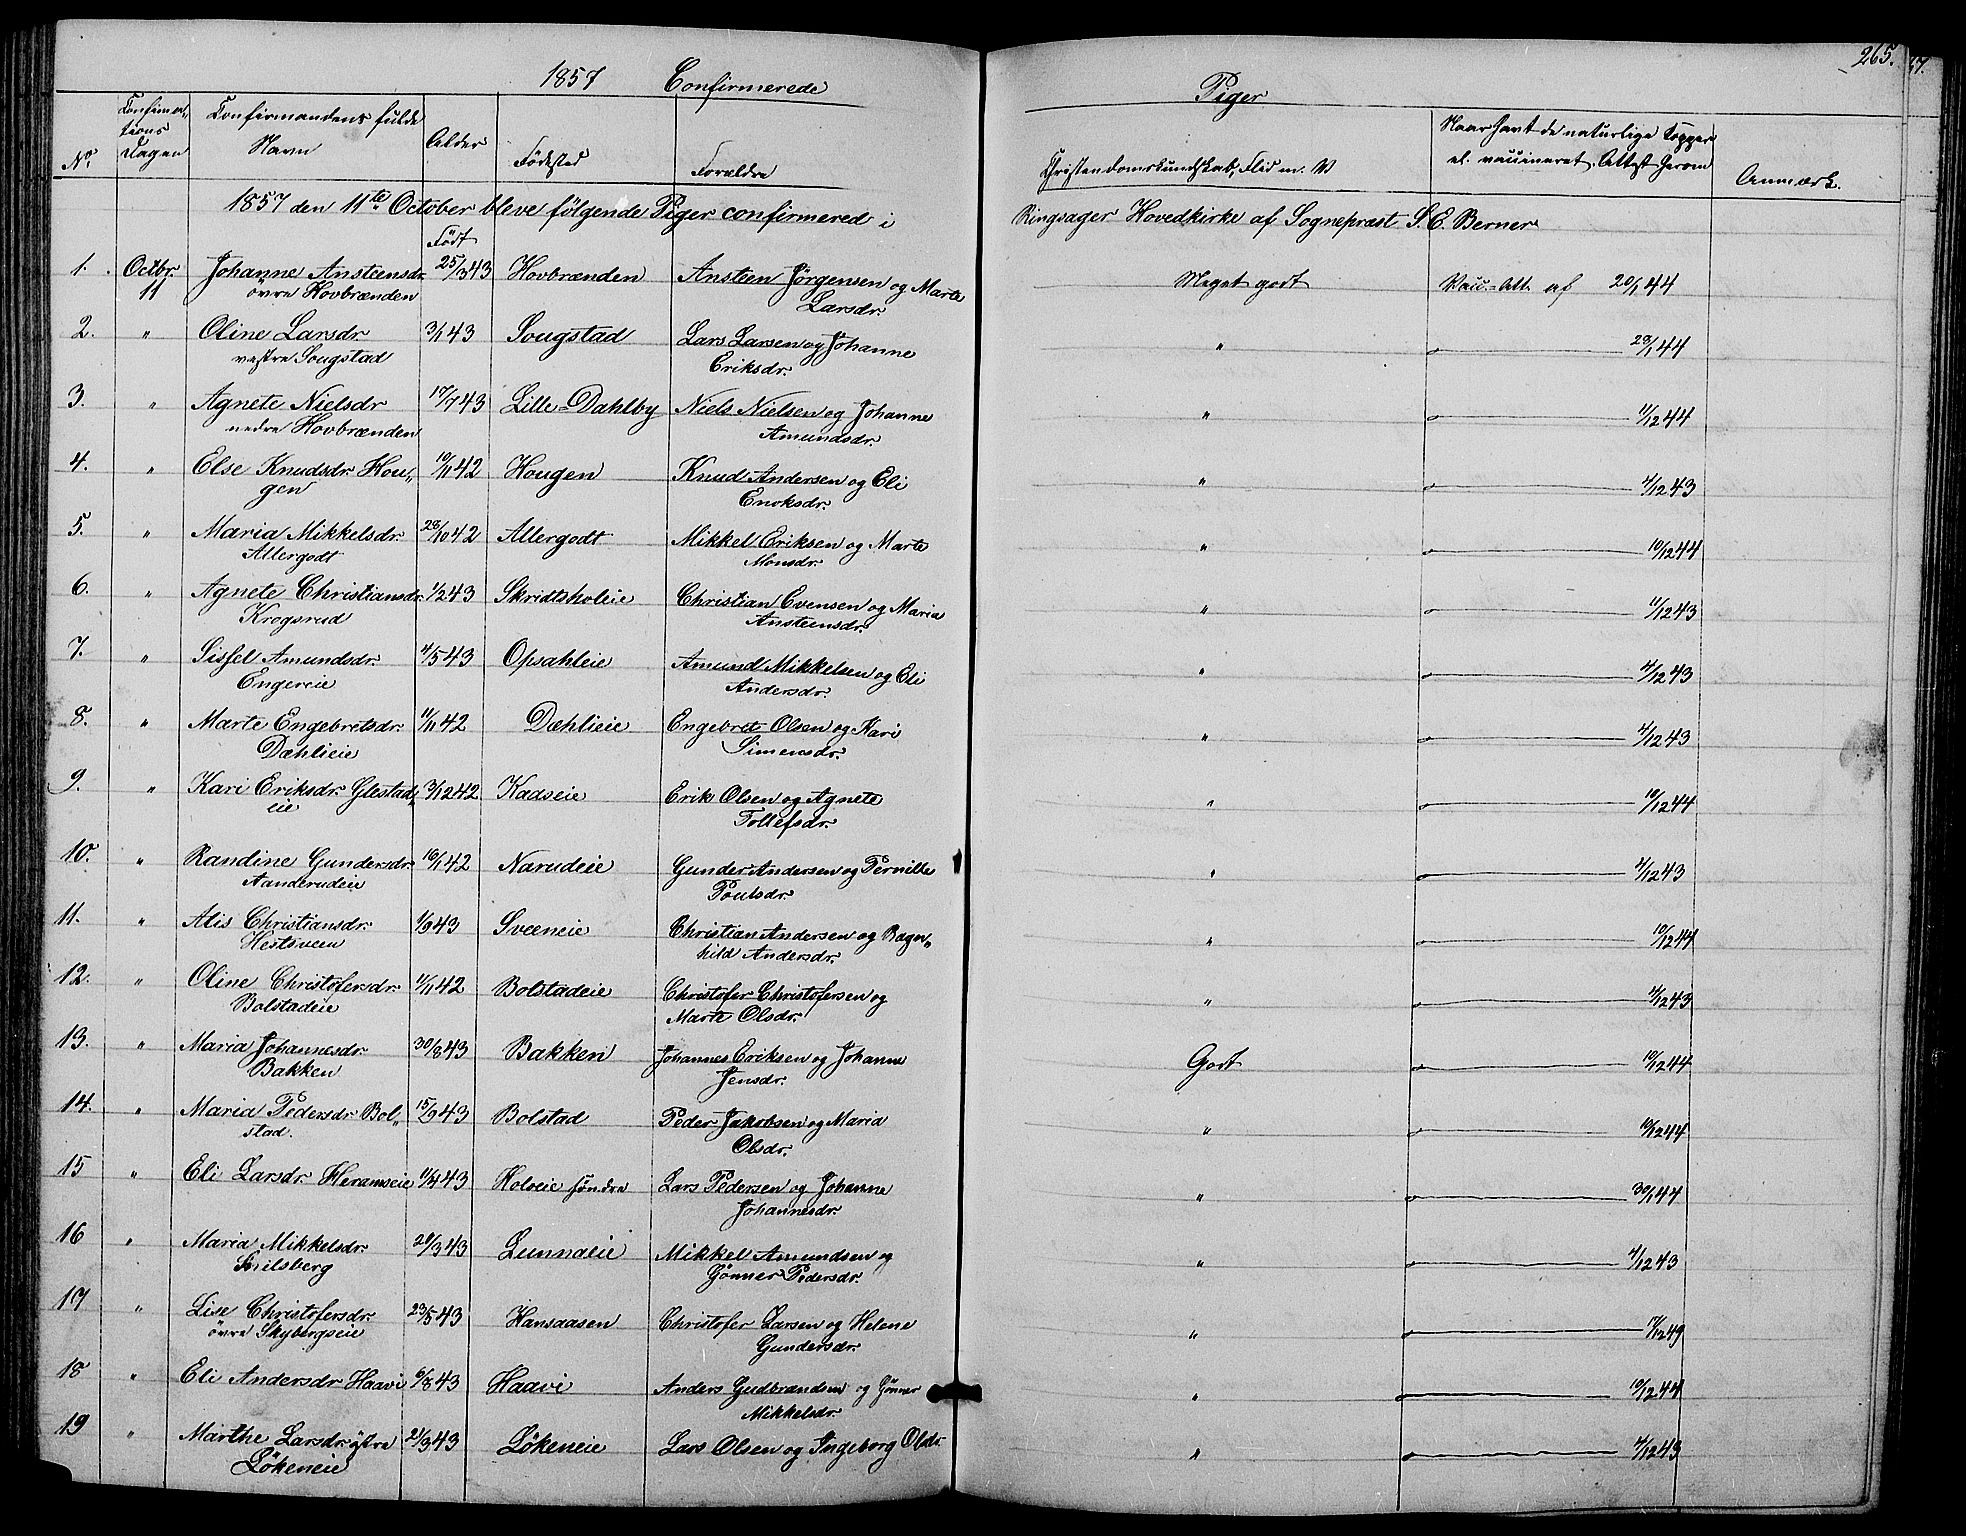 1857 Confirmerede Piger 265.
No. Confirmations Dagen Confirmandens fulde Navn Alder Fødested Forældre Christendomskundskab, Flid m. V Naar havt de naturlige Kopper el. vaccineret. Attest herom Anmærk.
1857 den 11te October bleve følgende Piger confirmered i Ringsager Hovedkirke af Sognepræst S. E. Berner
Født
1. Octbr. 11 Johanne Ansteensdr. 25/3 43 Hovbrænden Ansteen Jørgensen og Marte Meget godt Vacc.-Att. af 20/1 44
øvre Hovbrænden Larsdr.
2. " Oline Larsdr. 3/1 43 Sougstad Lars Larsen og Johanne " 28/1 44
vestre Sougstad Eriksdr.
3. " Agnete Nielsdr 17/7 43 Lille-Dahlby Niels Nielsen og Johanne " 11/12 44
nedre Hovbrænden Amundsdr.
4. " Else Knudsdr. Hou„ 10/11 42 Hougen Knud Andersen og Eli " 4/12 43
gen Enoksdr.
5. " Maria Mikkelsdr. 28/10 42 Allergodt Mikkel Eriksen og Marte " 10/12 44
Allergodt Monsdr.
6. " Agnete Christiansdr. 1/2 43 Skridtsholeie Christian Evensen og Maria " 11/12 43
Krogsrud Ansteensdr.
7. " Sissel Amundsdr. 4/5 43 Opsahleie Amund Mikkelsen og Eli " 4/12 43
Engereie Andersdr.
8. " Marte Engebretsdr. 11/11 42 Dæhlieie Engebret Olsen og Kari " 4/12 43
Dæhlieie Simensdr.
9. " Kari Eriksdr. Glestad„ 3/12 42 Kaaseie Erik Olsen og Agnete " 10/12 44
eie Tollefsdr.
10. " Randine Gundersdr. 16/1 42 Narudeie Gunder Andersen og Pernille " 4/12 43
Aanderudeie Poulsdr.
11. " Alis Christiansdr. 1/9 43 Sveeneie Christian Andersen og Ragn„ " 10/12 44
Hestsveen hild Andersdr.
12. " Oline Christofersdr. 11/11 42 Bolstadeie Christofer Christofersen og " 4/12 43
Bolstadeie Marte Olsdr.
13. " Maria Johannesdr. 30/8 43 Bakken Johannes Eriksen og Johanne Godt 10/12 44
Bakken Jensdr.
14. " Maria Pedersdr. Bol„ 15/9 43 Bolstad Peder Jakobsen og Maria " 10/12 44
stad. Olsdr.
15 " Eli Larsdr. Heramseie 11/4 43 Holoeie søndre Lars Pedersen og Johanne " 30/1 44
Johannesdr.
16 " Maria Mikkelsdr. 20/3 43 Lunnaeie Mikkel Amundsen og " 4/12 43
Smilsberg Gønner Pedersdr.
17 " Lise Christofersdr. 23/5 43 Hansaasen Christofer Larsen og Helene " 17/12 49
øvre Skybergseie Gundersdr.
18 " Eli Andersdr Haavi 6/8 43 Haavi Anders Gudbrandsen og Gønner " 10/12 44
Mikkelsdr.
19 " Marthe Larsdr. østre 21/3 43 Løkeneie Lars Olsen og Ingeborg Olsdr " 4/12 43
Løkeneie